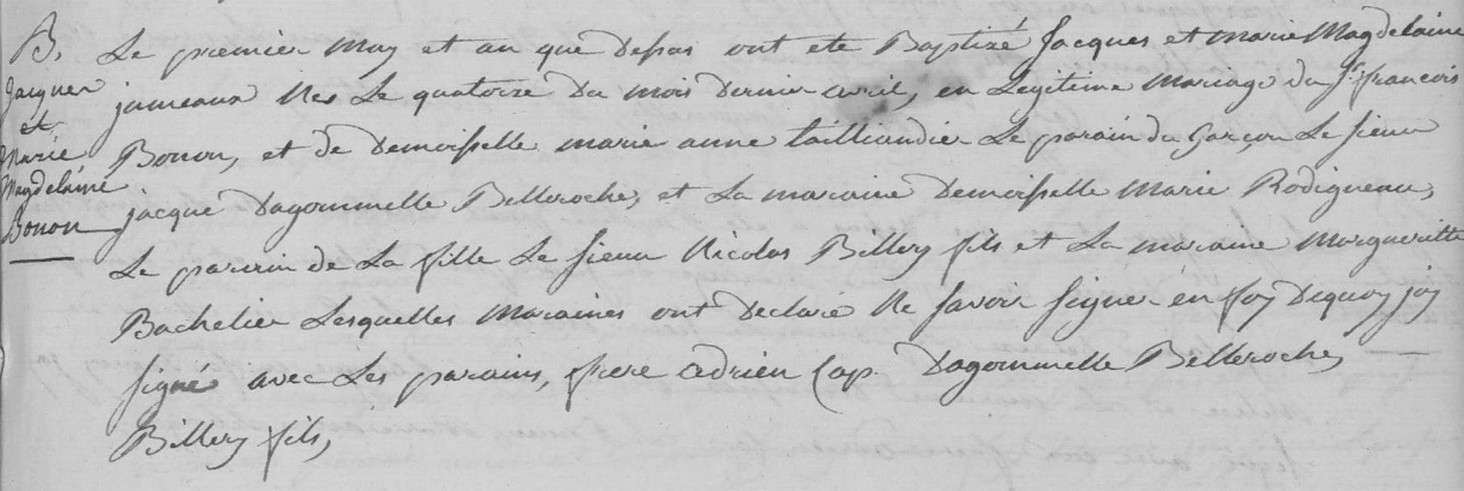 B.
Jacques
et
Marie
Magdelaine
Bonon
Le premier May et an que depas ont ete Baptizé Jacques et marie Magdelaine
jumeaux Nes Le quatorze du mois dernier avril, en Legitime Mariage du Sr. francois
Bonon, et de demoiselle marie anne tailliandier Le parain du Garçon Le sieur
jacque Dagommelle Belleroche, et La maraine demoiselle Marie Rodigneau,
Le parain de La fille Le sieur Nicolas Billery fils et La maraine Margueritte
Bachelier Lesquelles Maraines ont declaré Ne savoir signer en foy dequoy jay
signé avec Les parains, frere adrien Cap. Dagommelle Belleroche,
Billery fils,